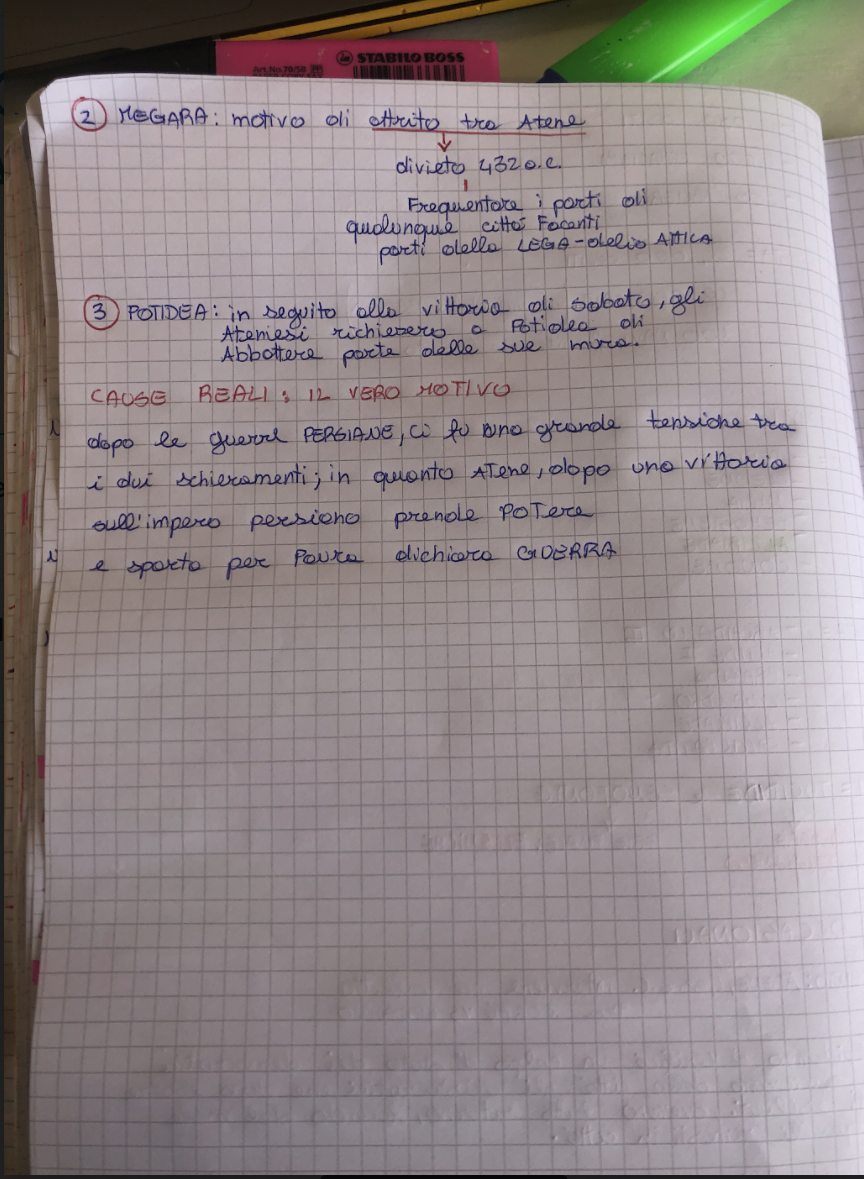 STABILO BOSS
Art. No. 70/56
2 MEGARA: motivo di attrito tra Atene
divieto 432 a.c.
Frequentare i porti di
qualunque città Facenti
parti della LEGA-delio ATTICA
3 POTIDEA: in seguito alla vittoria di Sabato, gli
Ateniesi richiesero a Potidea di
Abbattere parte delle sue mura.
CAUSE REALI: IL VERO MOTIVO
dopo le guerre PERSIANE, ci fu una grande tensione tra
i dui schieramenti; in quanto ATene, dopo una vittoria
sull'impero persiano prende POTere
e sparta per Paura dichiara GUERRA